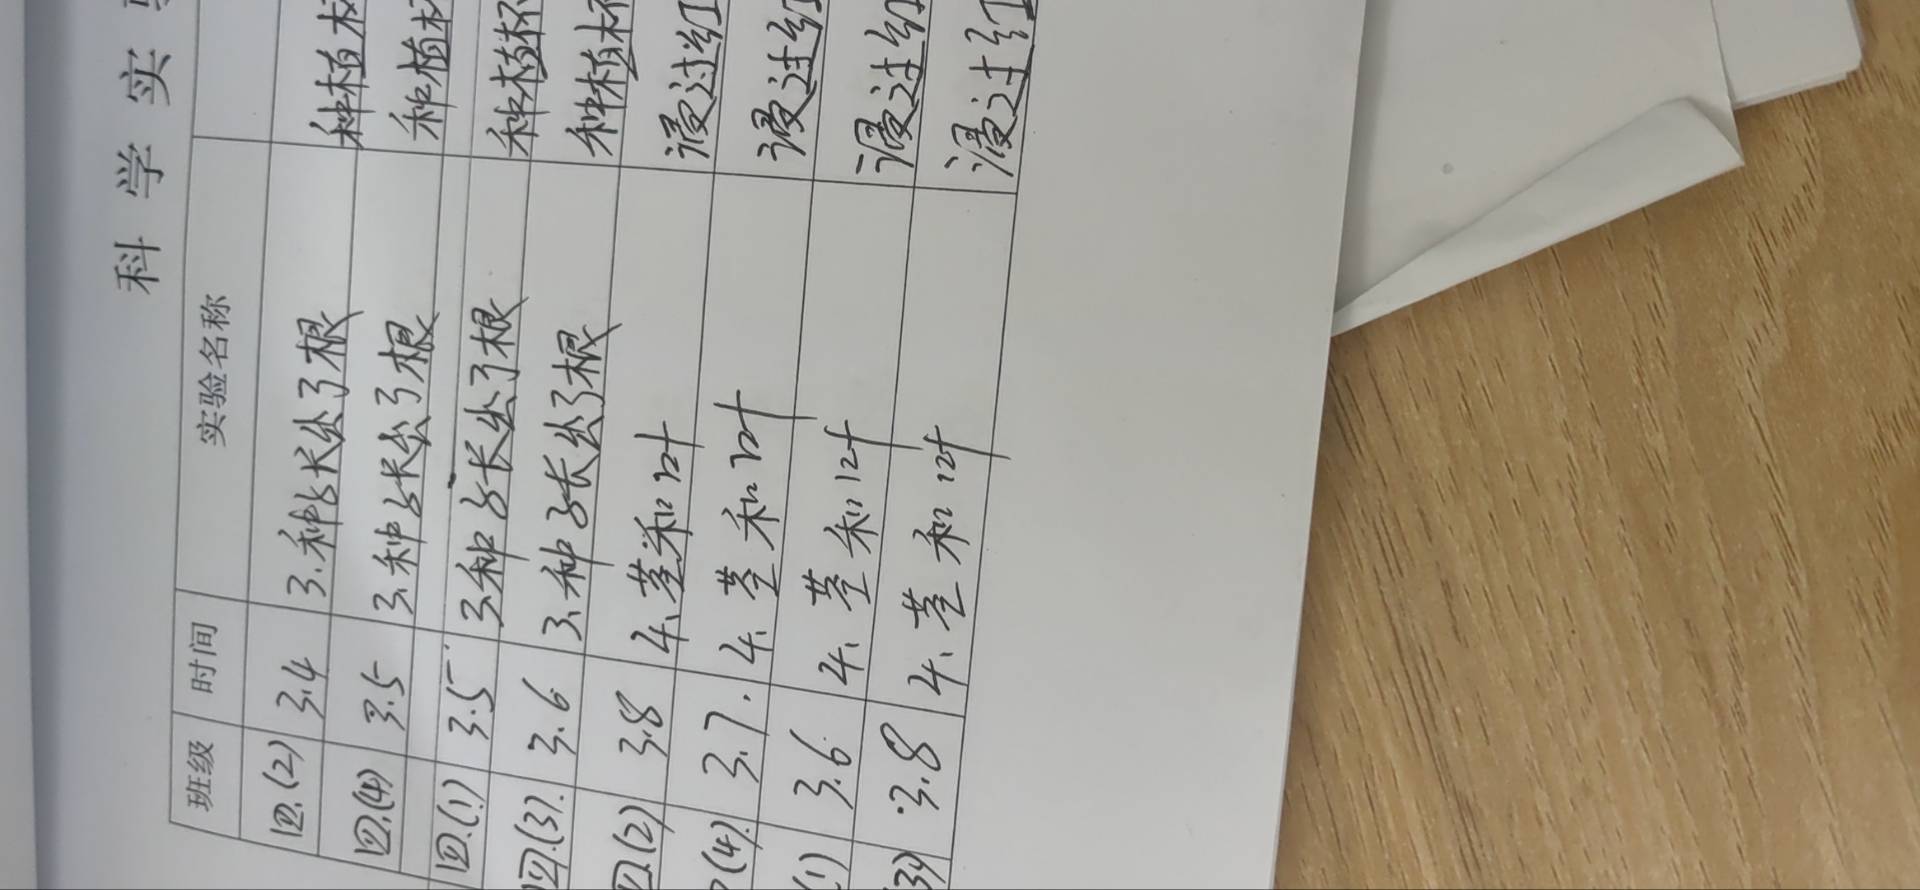 科学实
班级 时间 实验名称
四.(2) 3.4 3.种子长出了根 种植
四.(4) 3.5 3.种子长出了根 种植
四.(1) 3.5 3.种子长出了根 种植杯
四.(3). 3.6 3、种子长出了根 种植杯
四.(2) 3.8 4、茎和叶 浸过红
(4). 3.7. 4、茎和叶 浸过红
(1) 3.6 4、茎和叶 浸过红
(3) 3.8 4、茎和叶 浸过红